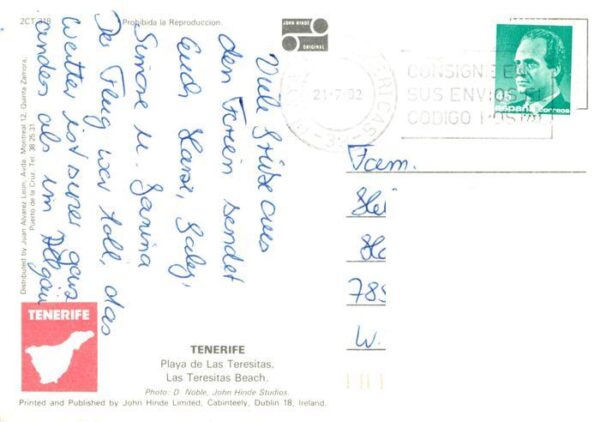 2CT-318
Prohibida la Reproduccion.
Viele Grüße aus
den Ferien sendet
Euch
Simone u. Janina
Der Flug war toll, das
Wetter ist super ganz
anders als im Allgäu
ORIGINAL
JOHN HINDE
21-7-92
CONSIGNE EN
SUS ENVIOS EL
CODIGO POSTAL
españa correos
Fam.
789
W.
Distributed by Juan Alvarez Leon, Avda. Montreal 12, Quinta Zamora,
Puerto de la Cruz. Tel. 38.25.31.
TENERIFE
TENERIFE
Playa de Las Teresitas.
Las Teresitas Beach.
Photo: D. Noble, John Hinde Studios.
Printed and Published by John Hinde Limited, Cabinteely, Dublin 18, Ireland.